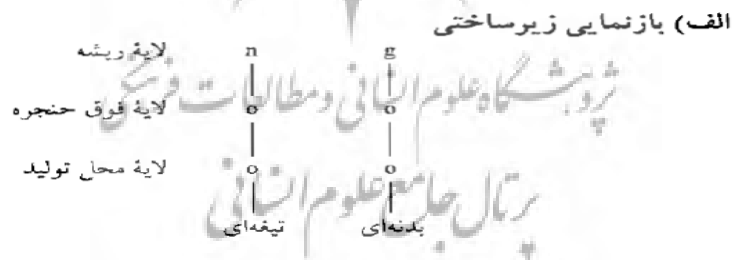 الف) بازنمایی زیرساختی
لایهٔ ریشه n g
لایهٔ فوق حنجره o o
لایهٔ محل تولید o o
تیغه‌ای بدنه‌ای
پژوهشگاه علوم انسانی و مطالعات فرهنگی
پرتال جامع علوم انسانی